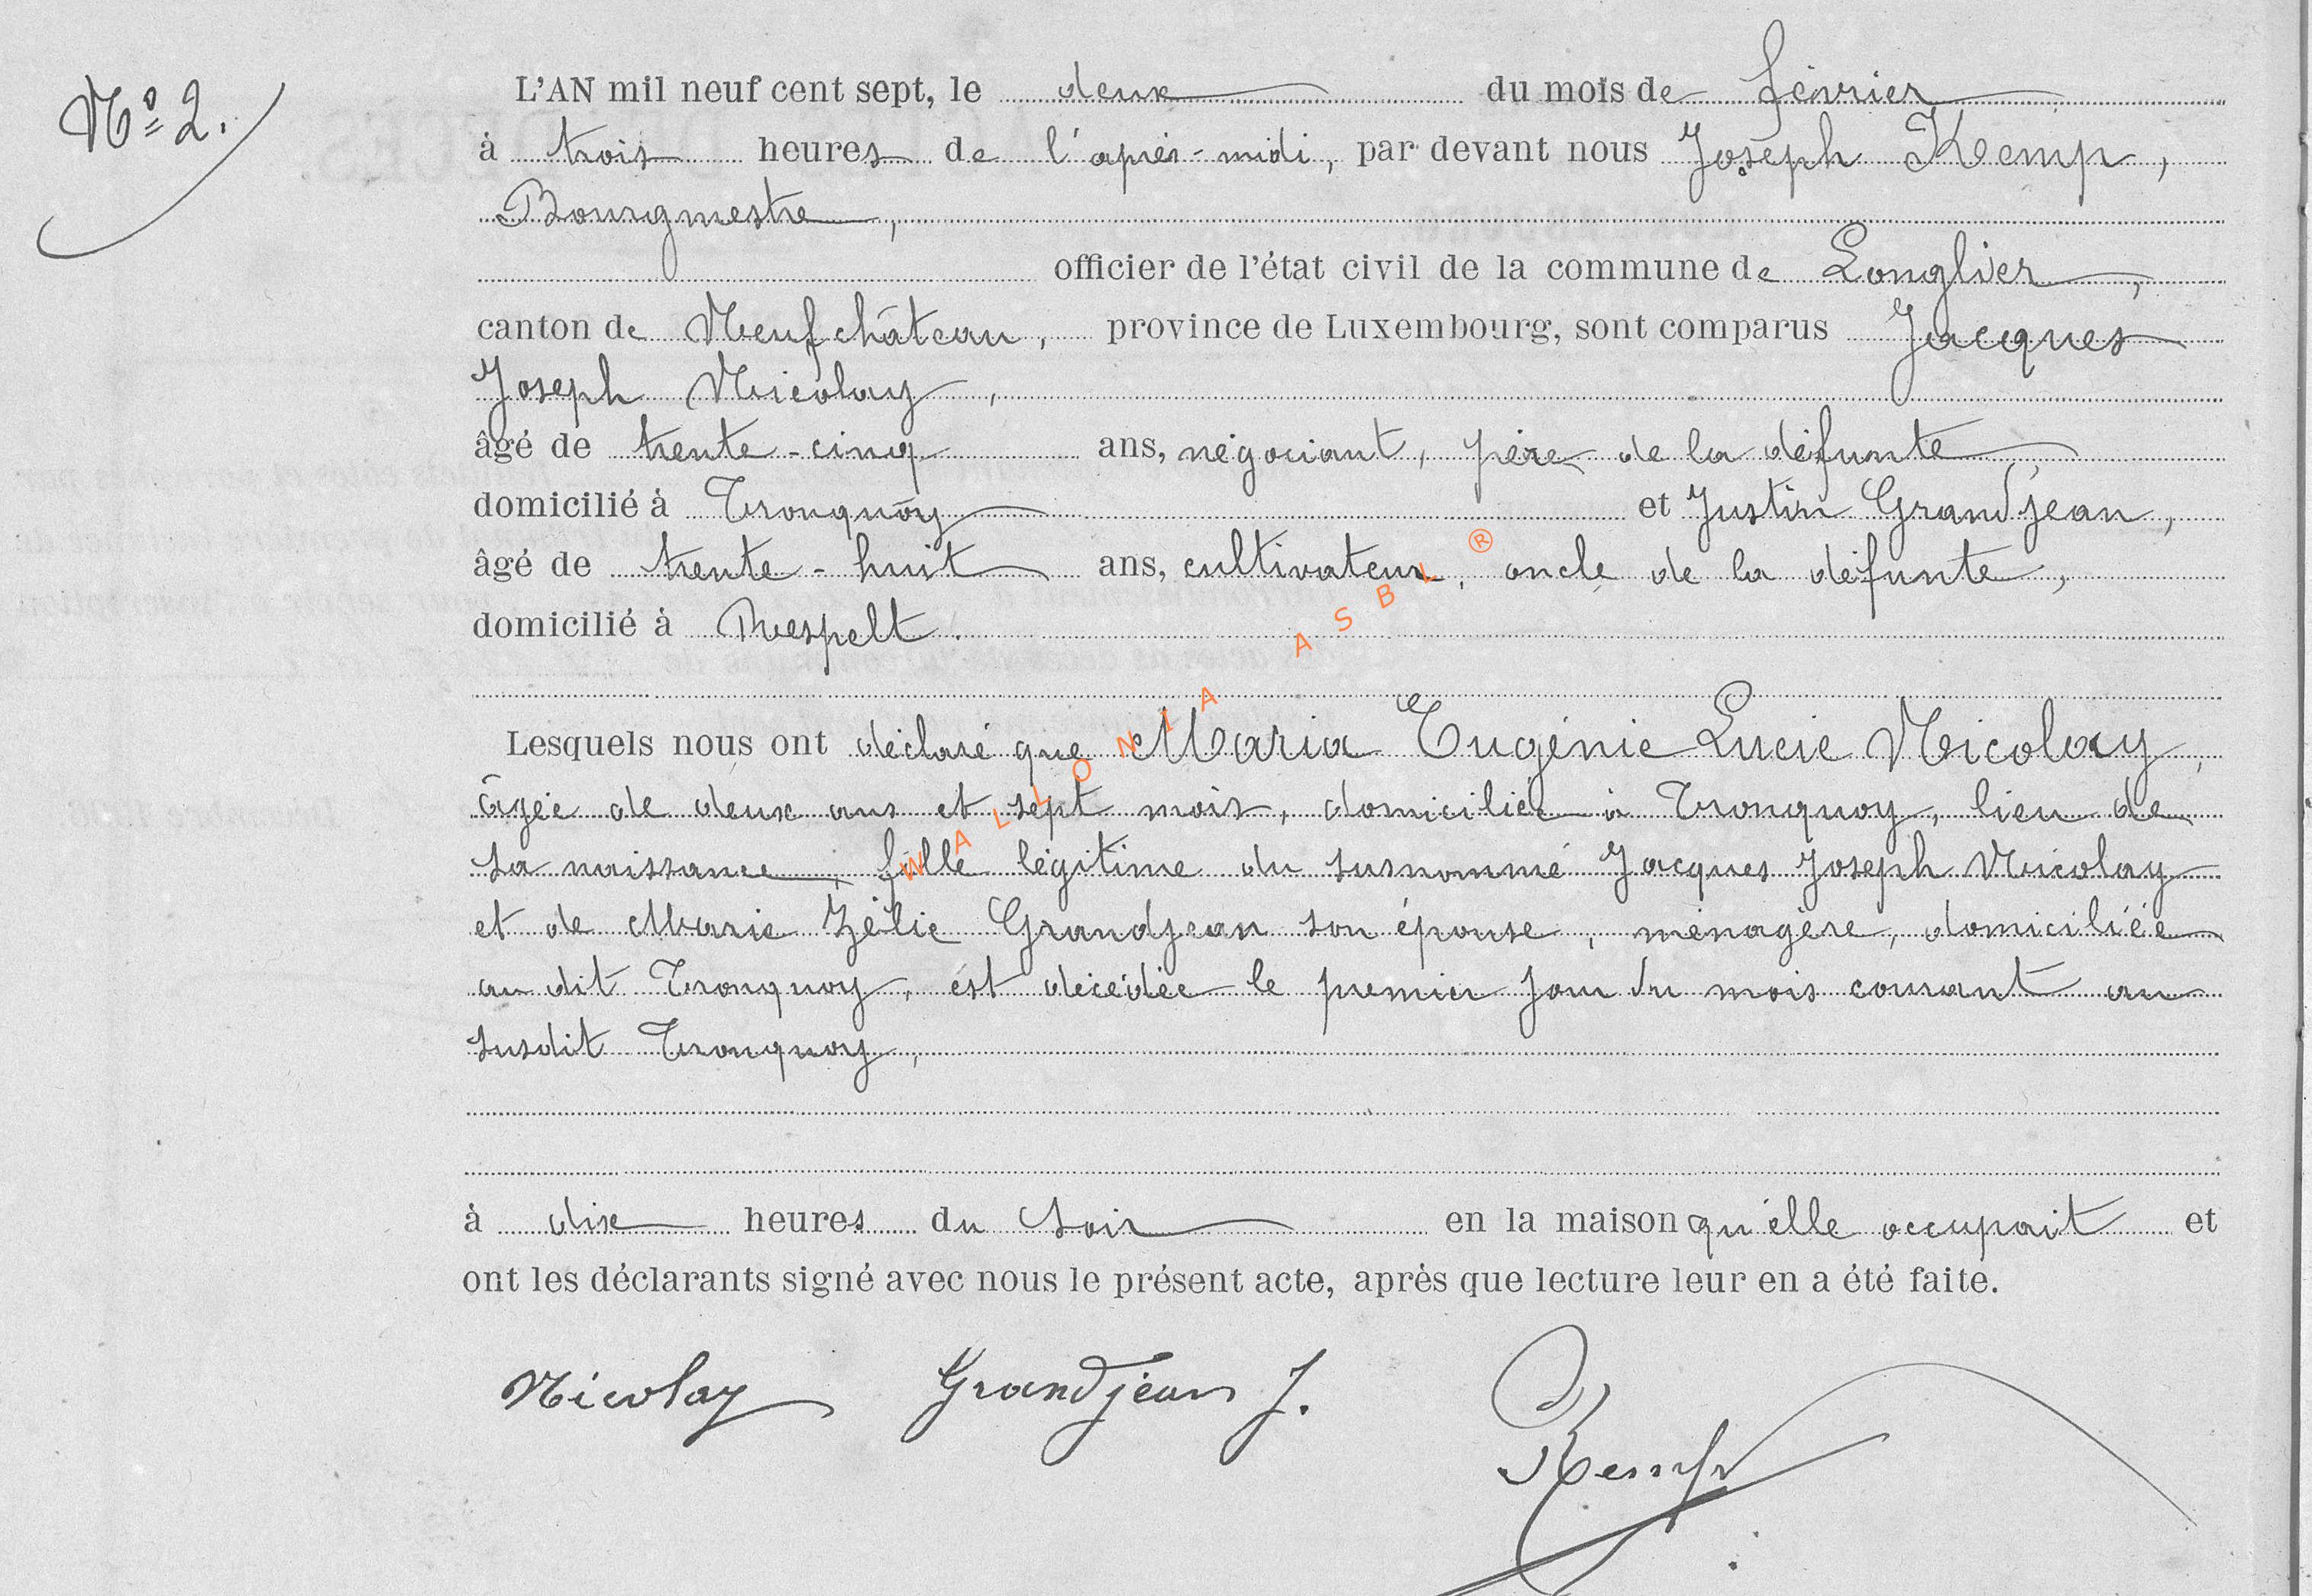 Nº 2.
L'AN mil neuf cent sept, le deux du mois de février
à trois heures de l'après-midi, par devant nous Joseph Kemp,
Bourgmestre,
officier de l'état civil de la commune de Longlier,
canton de Neufchâteau, province de Luxembourg, sont comparus Jacques
Joseph Nicolay,
âgé de trente-cinq ans, négociant, père de la défunte,
domicilié à Tronquoy et Justin Grandjean,
âgé de trente-huit ans, cultivateur, oncle de la défunte,
domicilié à Respelt.
Lesquels nous ont déclaré que Maria Eugénie Lucie Nicolay,
âgée de deux ans et sept mois, domiciliée à Tronquoy, lieu de
sa naissance, fille légitime du susnommé Jacques Joseph Nicolay
et de Marie Zélie Grandjean son épouse, ménagère, domiciliée
au dit Tronquoy, est décédée le premier jour du mois courant au
susdit Tronquoy,
à dix heures du soir en la maison qu'elle occupait et
ont les déclarants signé avec nous le présent acte, après que lecture leur en a été faite.
Nicolay Grandjean J. Kemp
WALLONIA ASBL ®